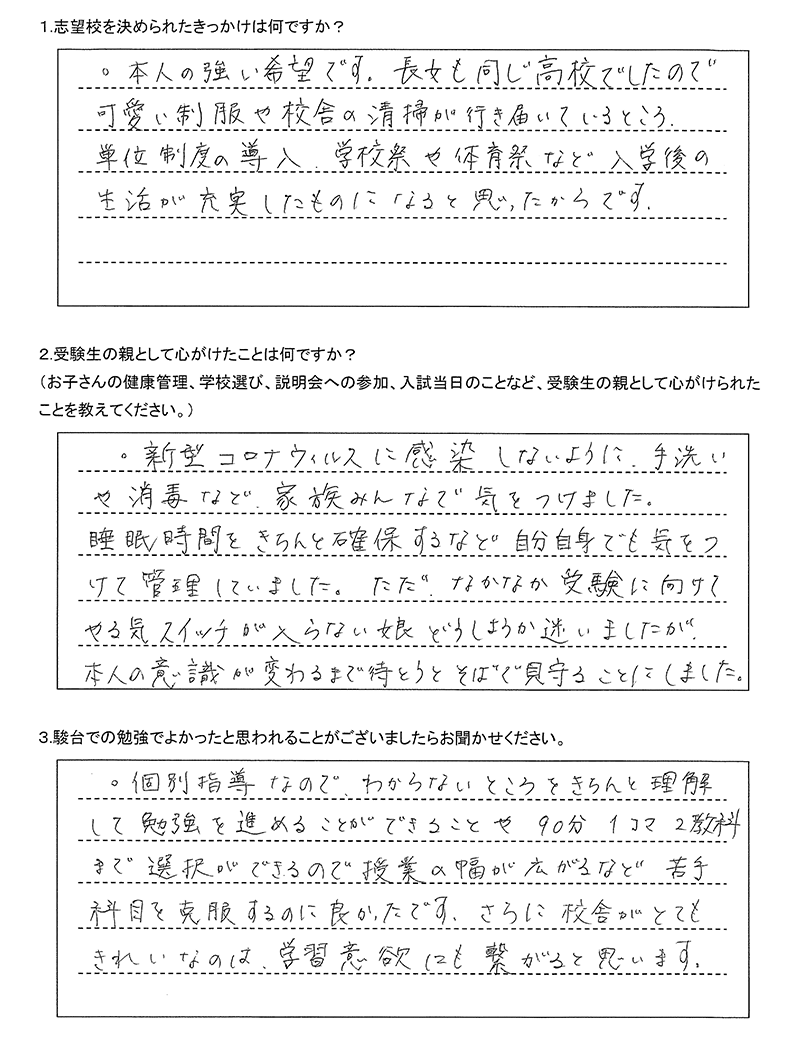 1.志望校を決められたきっかけは何ですか？
。本人の強い希望です。長女も同じ高校でしたので
可愛い制服や校舎の清掃が行き届いているところ、
単位制度の導入、学校祭や体育祭など入学後の
生活が充実したものになると思ったからです。
2.受験生の親として心がけたことは何ですか？
（お子さんの健康管理、学校選び、説明会への参加、入試当日のことなど、受験生の親として心がけられた
ことを教えてください。）
。新型コロナウィルスに感染しないように、手洗い
や消毒など、家族みんなで気をつけました。
睡眠時間をきちんと確保するなど自分自身でも気をつ
けて管理していました。ただ、なかなか受験に向けて
やる気スイッチが入らない娘どうしようか迷いましたが、
本人の意識が変わるまで待とうとそばで見守ることにしました。
3.駿台での勉強でよかったと思われることがございましたらお聞かせください。
。個別指導なので、わからないところをきちんと理解
して勉強を進めることができることや90分1コマ2教科
まで選択ができるので授業の幅が広がるなど苦手
科目を克服するのに良かったです。さらに校舎がとても
きれいなのは、学習意欲にも繋がると思います。